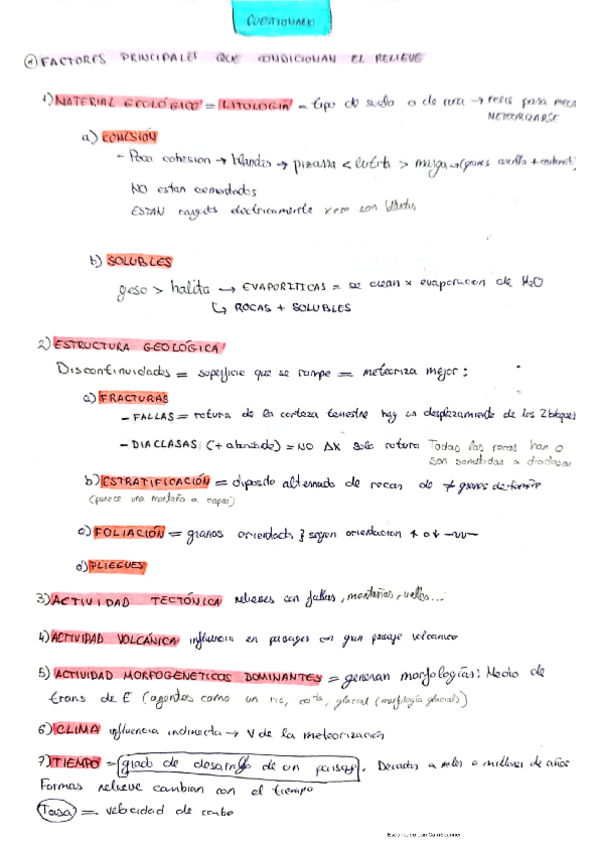 CUESTIONARIO
① FACTORES PRINCIPALES QUE CONDICIONAN EL RELIEVE
1) MATERIAL GEOLÓGICO = LITOLOGÍA = tipo de suelo o de roca → resis para meca
METEORIZARSE
a) COHESIÓN
- Poca cohesion → blandas → pizarra < lutita > marga → (granos arcilla +
NO estan cementados
ESTAN electricamente xeso son blandas
b) SOLUBLES
yeso > halita → EVAPORITICAS = se crean x evaporacion de H2O
↳ ROCAS + SOLUBLES
2) ESTRUCTURA GEOLÓGICA
Discontinuidades = superficie que se rompe = meteoriza mejor:
a) FRACTURAS
- FALLAS = rotura de la corteza terrestre hay un desplazamiento de los 2 bloques
- DIACLASAS (+ abundante) = NO ΔX solo rotura Todas las rocas han o
son sometidas a diaclasas
b) ESTRATIFICACIÓN = deposito alternado de rocas de ≠ granos
(parece una montaña a capas)
c) FOLIACIÓN = granos orientados } segun orientacion
d) PLIEGUES
3) ACTIVIDAD TECTÓNICA relieves con fallas, montañas, valles...
4) ACTIVIDAD VOLCÁNICA influencia en paisajes con gran paisaje volcanico
5) ACTIVIDAD MORFOGENETICOS DOMINANTES = generan morfologías: Medio de
trans de E (agentes como un rio, costa, glacial (morfología glacial))
6) CLIMA influencia indirecta → V de la meteorización
7) TIEMPO = grado de desarrollo de un paisaje. Decadas a miles o millones de años
Formas relieve cambian con el tiempo
Tasa = velocidad de cambio
Escaneado con CamScanner